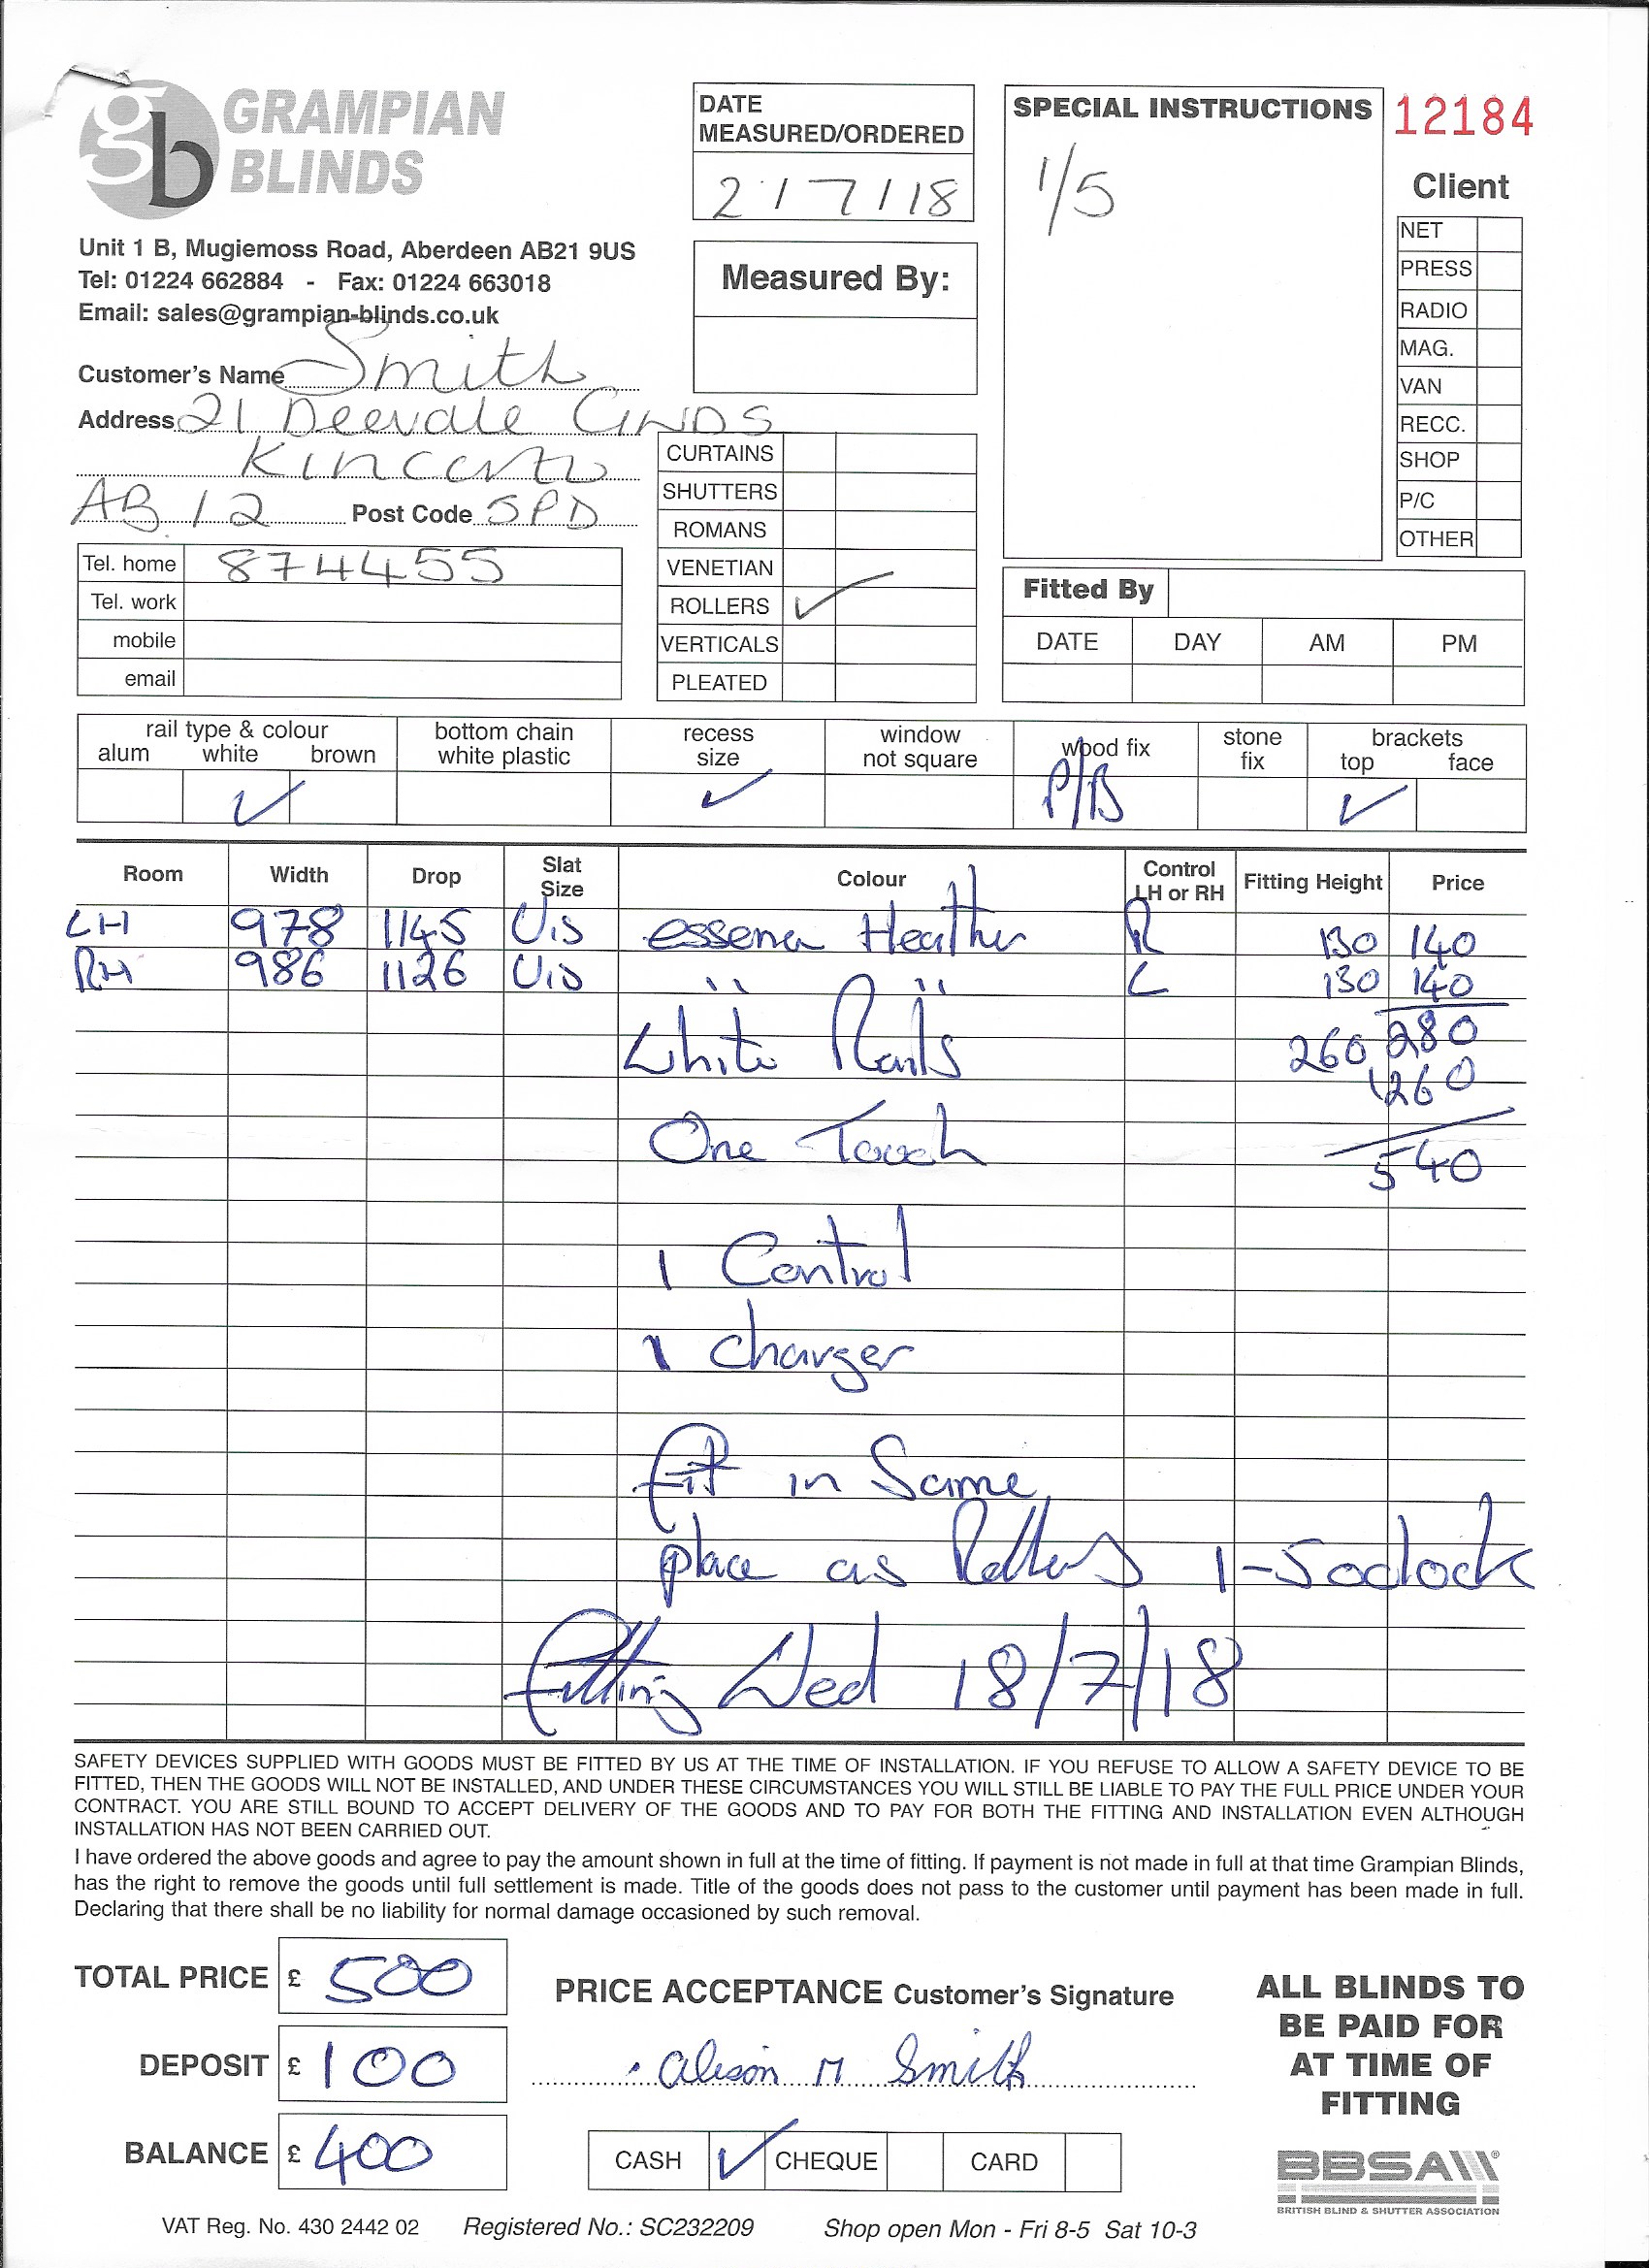 gb GRAMPIAN BLINDS
Unit 1 B, Mugiemoss Road, Aberdeen AB21 9US
Tel: 01224 662884 - Fax: 01224 663018
Email: sales@grampian-blinds.co.uk
DATE MEASURED/ORDERED
2/7/18
Measured By:
SPECIAL INSTRUCTIONS
1/5
12184
Client
NET
PRESS
RADIO
MAG.
VAN
RECC.
SHOP
P/C
OTHER
Customer's Name Smith
Address 21 Deevale GNDS
AB12 Post Code 5PD
Tel. home 874455
Tel. work
mobile
email
CURTAINS
SHUTTERS
ROMANS
VENETIAN
ROLLERS ✓
VERTICALS
PLEATED
Fitted By
DATE DAY AM PM
rail type & colour
alum white brown
✓
bottom chain
white plastic
recess
size
✓
window
not square
wood fix
P/B
stone
fix
brackets
top face
✓
Room Width Drop Slat Size Colour Control LH or RH Fitting Height Price
LH 978 1145 Vis essence Heather R 130 140
RH 986 1126 Vis " " L 130 140
White Rails 260 280
260
One Touch 540
1 Control
1 charger
fit in Same
place as Rollers 1-5 oclock
fitting Wed 18/7/18
SAFETY DEVICES SUPPLIED WITH GOODS MUST BE FITTED BY US AT THE TIME OF INSTALLATION. IF YOU REFUSE TO ALLOW A SAFETY DEVICE TO BE
FITTED, THEN THE GOODS WILL NOT BE INSTALLED, AND UNDER THESE CIRCUMSTANCES YOU WILL STILL BE LIABLE TO PAY THE FULL PRICE UNDER YOUR
CONTRACT. YOU ARE STILL BOUND TO ACCEPT DELIVERY OF THE GOODS AND TO PAY FOR BOTH THE FITTING AND INSTALLATION EVEN ALTHOUGH
INSTALLATION HAS NOT BEEN CARRIED OUT.
I have ordered the above goods and agree to pay the amount shown in full at the time of fitting. If payment is not made in full at that time Grampian Blinds,
has the right to remove the goods until full settlement is made. Title of the goods does not pass to the customer until payment has been made in full.
Declaring that there shall be no liability for normal damage occasioned by such removal.
TOTAL PRICE £ 500
DEPOSIT £ 100
BALANCE £ 400
PRICE ACCEPTANCE Customer's Signature
Alison M Smith
CASH ✓ CHEQUE CARD
ALL BLINDS TO
BE PAID FOR
AT TIME OF
FITTING
BBSA
BRITISH BLIND & SHUTTER ASSOCIATION
VAT Reg. No. 430 2442 02 Registered No.: SC232209 Shop open Mon - Fri 8-5 Sat 10-3